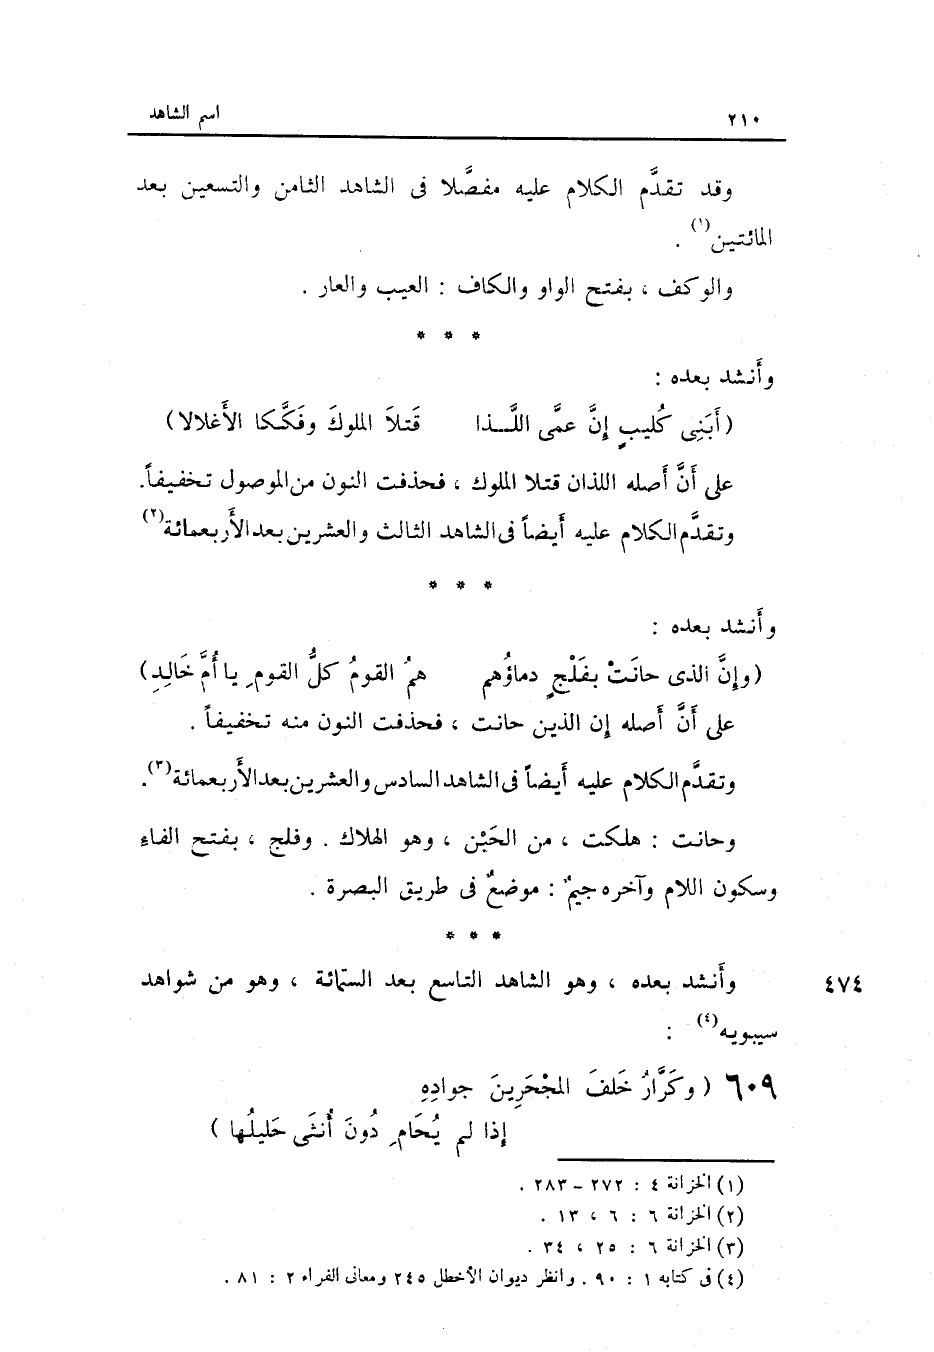 ٢١٠ اسم الشاهد
وقد تقدَّم الكلام عليه مفصَّلا فى الشاهد الثامن والتسعين بعد
المائتين(١) .
والوكف ، بفتح الواو والكاف : العيب والعار .
* * *
وأَنشد بعده :
(أَبَنِى كُليبٍ إِنَّ عمَّى اللَّــذا قَتلاَ الملوكَ وفَكَّكا الأَغلالا)
على أَنَّ أَصله اللذان قتلا الملوك ، فحذفت النون من الموصول تخفيفاً.
وتقدَّم الكلام عليه أَيضاً فى الشاهد الثالث والعشرين بعد الأَربعمائة(٢)
* * *
وأَنشد بعده :
(وإِنَّ الذى حانَتْ بفَلْجٍ دماؤُهم همُ القومُ كلُّ القومِ يا أُمَّ خَالِدِ)
على أَنَّ أَصله إِن الذين حانت ، فحذفت النون منه تخفيفاً .
وتقدَّم الكلام عليه أَيضاً فى الشاهد السادس والعشرين بعد الأَربعمائة(٣).
وحانت : هلكت ، من الحَيْن ، وهو الهلاك . وفلج ، بفتح الفاء
وسكون اللام وآخره جيمٌ : موضعٌ فى طريق البصرة .
* * *
٤٧٤ وأَنشد بعده ، وهو الشاهد التاسع بعد الستّمائة ، وهو من شواهد
سيبويه(٤) :
٦٠٩ ( وكَرَّارُ خَلفَ المجْحَرِينَ جوادِهِ
إِذا لم يُحَامِ دُونَ أُنثَى حَليلُها )
(١) الخزانة ٤ : ٢٧٢ – ٢٨٣ .
(٢) الخزانة ٦ : ٦ ، ١٣ .
(٣) الخزانة ٦ : ٢٥ ، ٣٤ .
(٤) فى كتابه ١ : ٩٠ . وانظر ديوان الأخطل ٢٤٥ ومعانى الفراء ٢ : ٨١ .